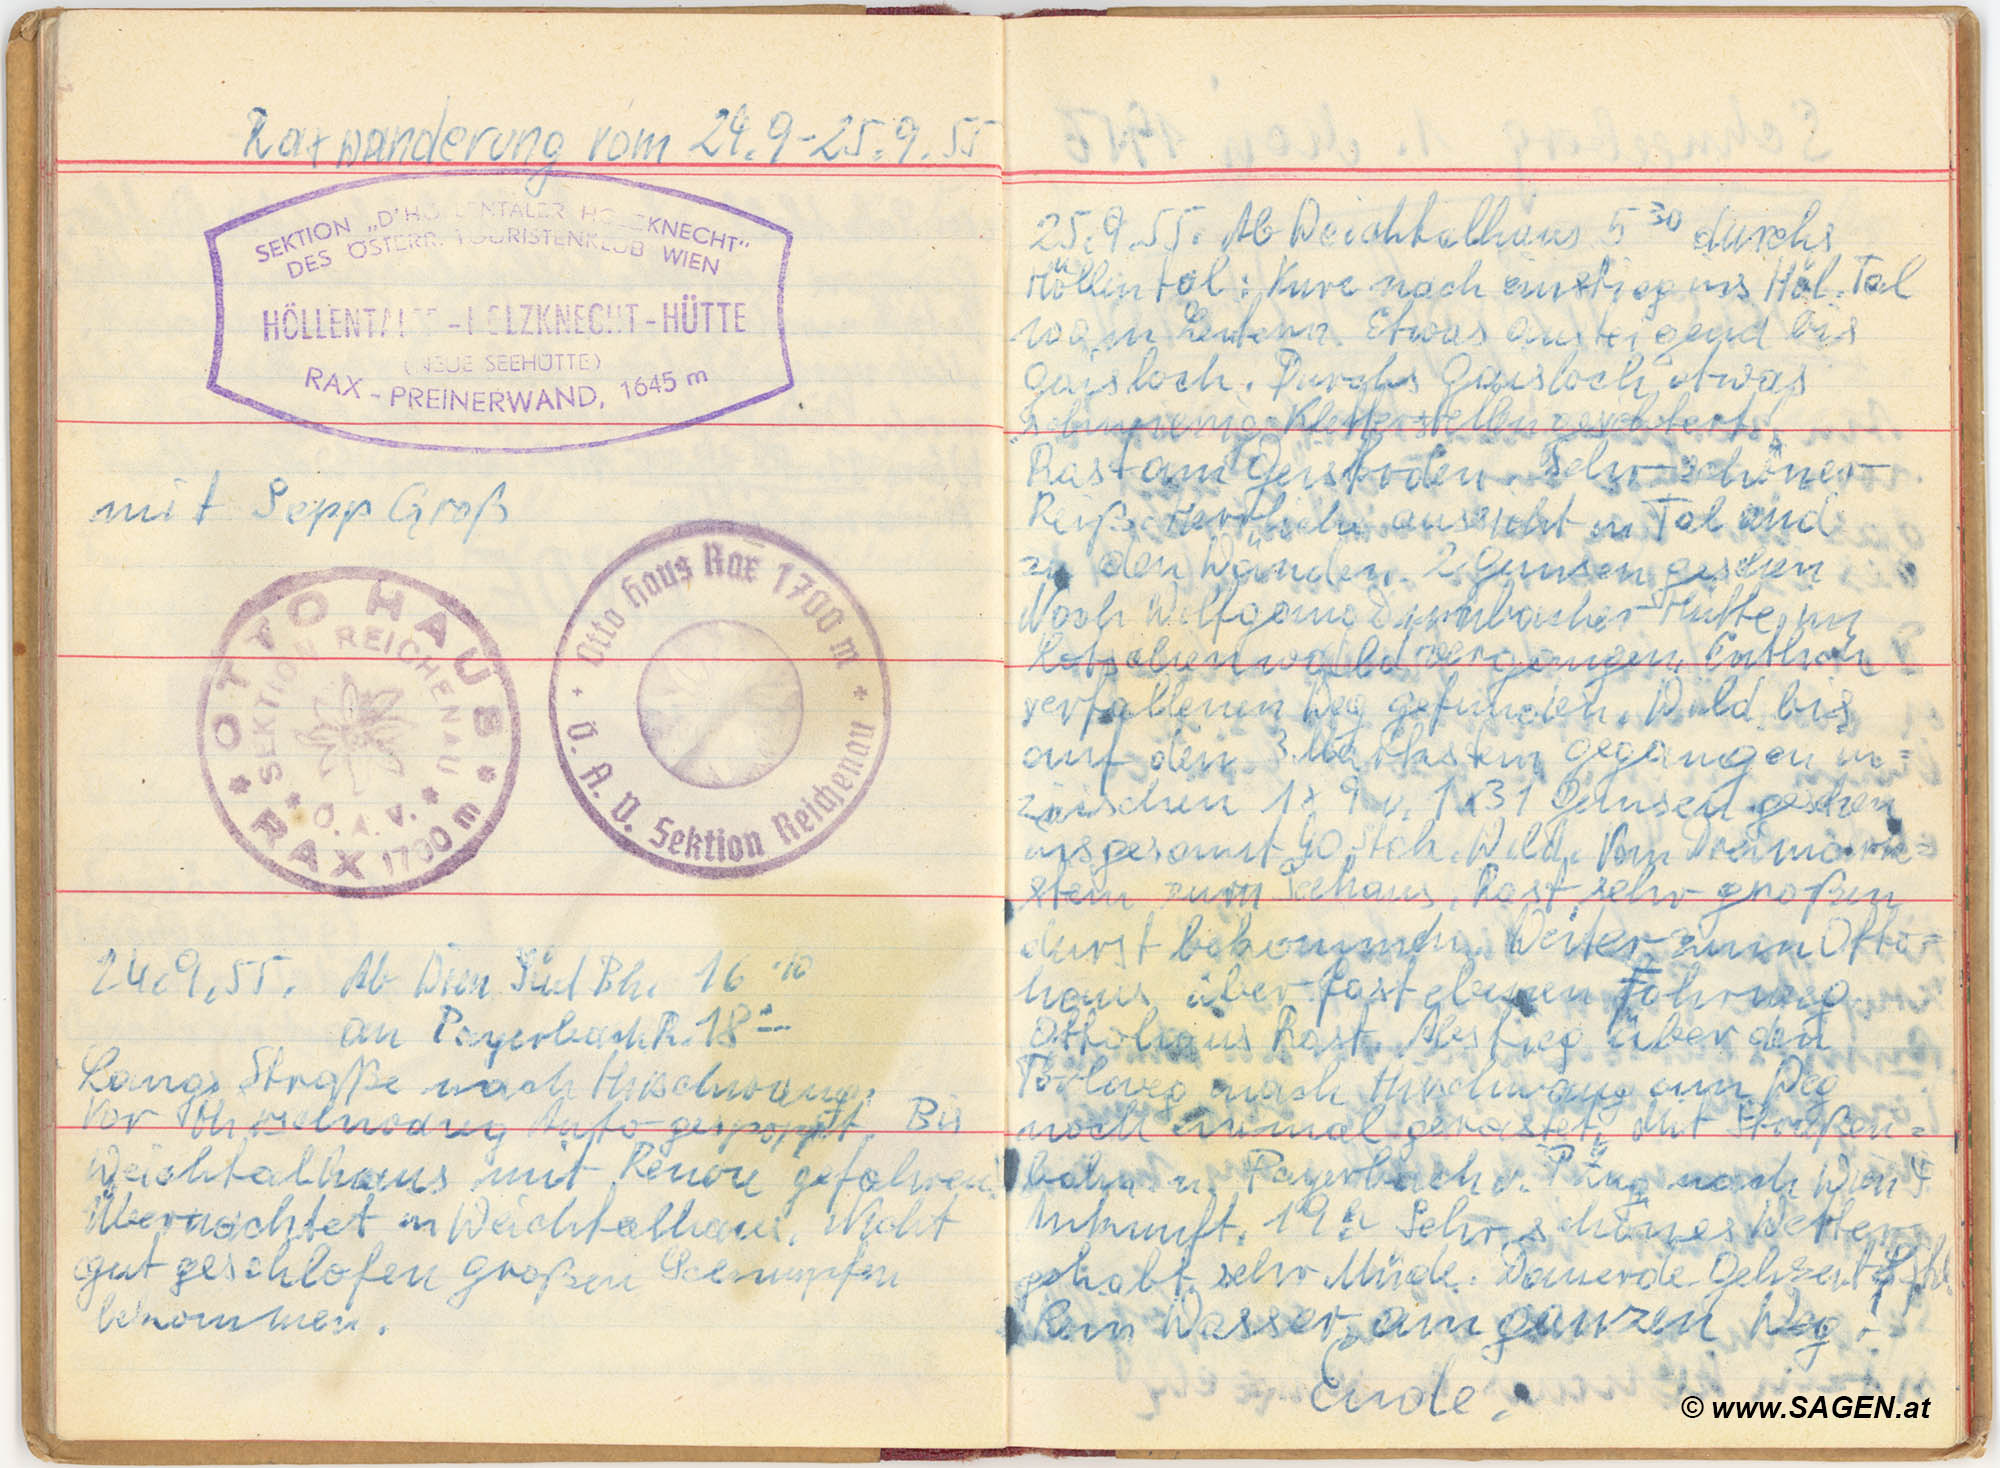 Raxwanderung vom 24.9-25.9.55
SEKTION „D'HÖLLENTALER HOLZKNECHT"
DES ÖSTERR. TOURISTENKLUB WIEN
HÖLLENTALER-HOLZKNECHT-HÜTTE
(NEUE SEEHÜTTE)
RAX-PREINERWAND, 1645 m
mit Sepp Groß
OTTO HAUS
SEKTION REICHENAU
* Ö.A.V. *
* RAX 1700 m *
Otto Haus Rax 1700 m
Ö. A. V. Sektion Reichenau
24.9.55. Ab Wien Süd Bh. 16 10
an Payerbach R. 18
Langs Straße nach Hirschwang.
Vor Hirschwang Auto gestoppt. Bis
Weichtalhaus mit Renou gefahren.
Übernachtet in Weichtalhaus. Nicht
gut geschlofen großen Schnupfen
bekommen.
25.9.55. Ab Weichtalhaus 5 30 durchs
Höllental: Kurz nach einstieg ins Höl. Tal
100 m Leitern. Etwas ansteigend bis
Gaisloch. Durchs Gaisloch etwas
Kletterstellen
Rast am Geisboden. Sehr schöner
aussicht in Tal und
zu den Wänden. 2 Gemsen gesehen
Nach Wolfgang Dirnbacher Hütte im
vergangen. Entlich
verfallenen Weg gefunden. Wald bis
auf den 3 Markstein gegangen in=
zwischen 1x 9 u. 1x31 Gemsen gesehen
insgesamt 40 Stck. Wild. Vom Dreimark=
stein zum Seehaus. Rast sehr großen
durst bekommen. Weiter zum Otto-
haus über fast ebenen Fahrweg
Ottohaus Rast. Abstieg über den
Törlweg nach Hirschwang am Weg
noch einmal gerastet. Mit Straßen=
bahn n. Payerbach v. Zug nach Wien
Ankunft. 19 h Sehr schönes Wetter
gehabt sehr Müde. Gehzeit
Kein Wasser am ganzen Weg.!
Ende.
© www.SAGEN.at